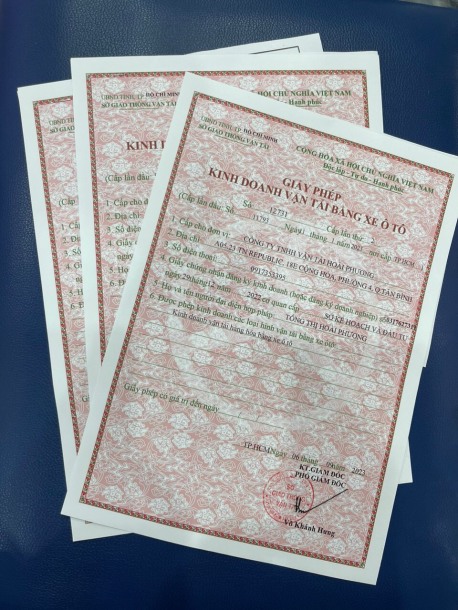 UBND TỈNH, TP HỒ CHÍ MINH
SỞ GIAO THÔNG VẬN TẢI
KINH D
UBND TỈNH, TP HỒ CHÍ MINH
SỞ GIAO THÔNG VẬN TẢI
CỘNG HÒA XÃ HỘI CHỦ NGHĨA VIỆT NAM
Độc lập - Tự do - Hạnh phúc
GIẤY PHÉP
KINH DOANH VẬN TẢI BẰNG XE Ô TÔ
Số: 12731 Cấp lần thứ:
(Cấp lần đầu: Số: 11795 Ngày tháng 1 năm 2021 nơi cấp TP.HCM
1. Cấp cho đơn vị: CÔNG TY TNHH VẬN TẢI HOÀI PHƯƠNG
2. Địa chỉ: A05.23 TN REPUBLIC, 18E CỘNG HÒA, PHƯỜNG 4, Q TÂN BÌNH
3. Số điện thoại: 0917353395
4. Giấy chứng nhận đăng ký kinh doanh (hoặc đăng ký doanh nghiệp) số
ngày 20 tháng 12 năm 2022 cơ quan cấp SỞ KẾ HOẠCH VÀ ĐẦU TƯ
5. Họ và tên người đại diện hợp pháp TỐNG THỊ HOÀI PHƯƠNG
6. Được phép kinh doanh các loại hình vận tải bằng xe ô tô:
Kinh doanh vận tải hàng hóa bằng xe ô tô
Giấy phép có giá trị đến ngày
TP.HCM Ngày 06 tháng 09 năm 2023
KT.GIÁM ĐỐC
PHÓ GIÁM ĐỐC
Võ Khánh Hưng